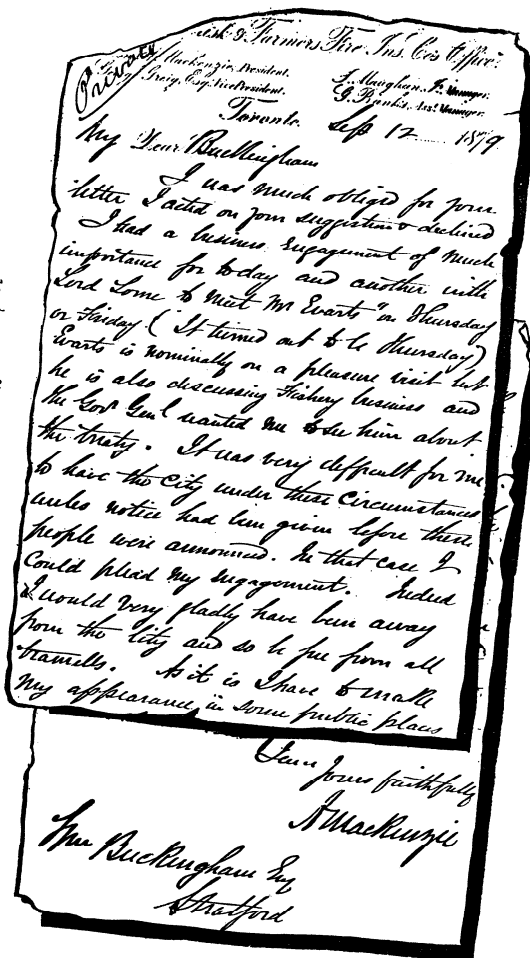 Private
& Farmers Fire Ins. Co's Office.
Mackenzie, President.
Greig, Esq. Vice President.
J. Maughan, Jr. Manager.
G. Banks, Ass. Manager.
Toronto. Sep 12 1879
My Dear Buckingham
I was much obliged for your
letter I acted on your suggestion & declined
I had a business engagement of much
importance for today and another with
Lord Lorne to meet Mr Evarts on Thursday
or Friday (It turned out to be Thursday)
Evarts is nominally on a pleasure visit but
he is also discussing Fishery business and
the Govr Genl wanted me to see him about
the treaty. It was very difficult for me
to have the City under these Circumstances
unless notice had been given before these
people were announced. In that case I
could plead my engagement. Indeed
I would very gladly have been away
from the City and so be free from all
tramells. As it is I have to make
my appearance in some public places
Yours faithfully
A Mackenzie
Wm Buckingham Esq
Stratford